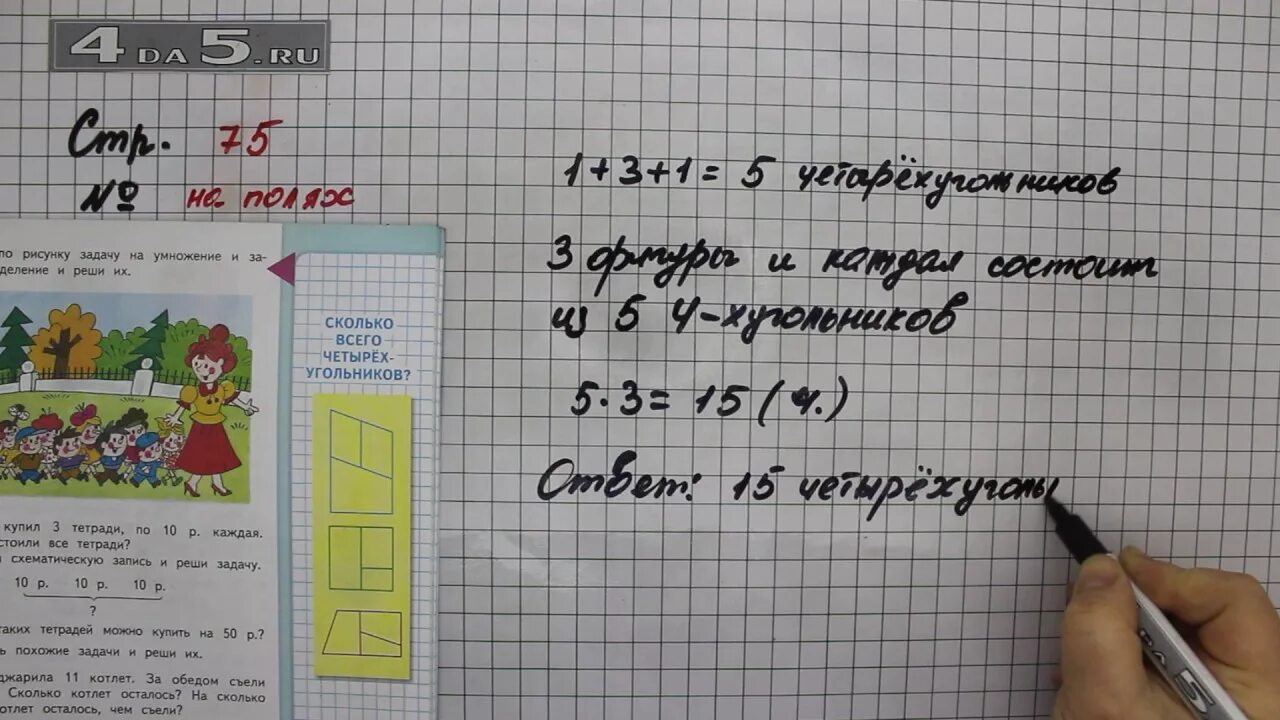 4 DA 5.RU
Стр. 75
№ на полях
по рисунку задачу на умножение и за-
деление и реши их.
СКОЛЬКО
ВСЕГО
ЧЕТЫРЁХ-
УГОЛЬНИКОВ?
купил 3 тетради, по 10 р. каждая.
стоили все тетради?
схематическую запись и реши задачу.
10 р. 10 р. 10 р.
?
таких тетрадей можно купить на 50 р.?
похожие задачи и реши их.
джарила 11 котлет. За обедом съели
Сколько котлет осталось? На сколько
котлет осталось, чем съели?
1+3+1= 5 четырёхугольников
3 фигуры и каждая состоит
из 5 4-хугольников
5·3= 15 (ч.)
Ответ: 15 четырёхуголь